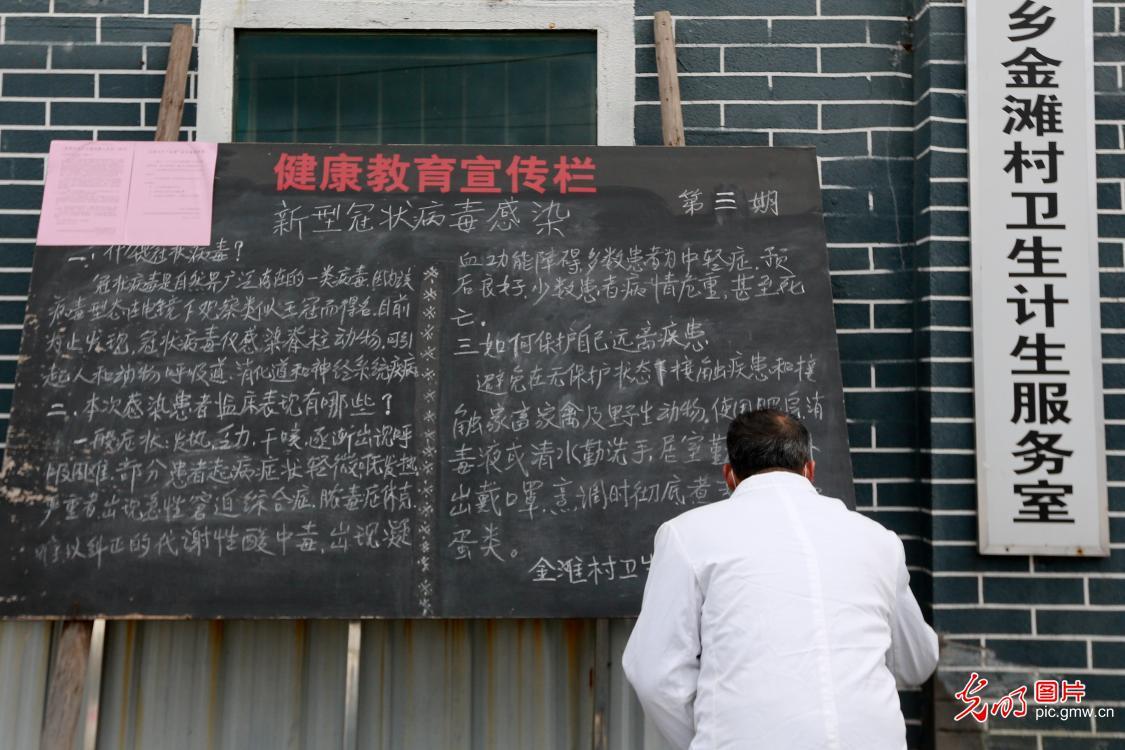 健康教育宣传栏
新型冠状病毒感染
第三期
冠状病毒?
冠状病毒是自然界广泛存在的一类病毒,因该类
病毒型态在电镜下观察类似王冠而得名.目前
为止发现,冠状病毒仅感染脊柱动物,可引
起人和动物呼吸道、消化道和神经系统疾病
二、本次感染患者临床表现有哪些?
一般症状:发热、乏力、干咳、逐渐出现呼
吸困难,部分患者起病症状轻微,可无发热
严重者出现急性窘迫综合症,脓毒症休克,
难以纠正的代谢性酸中毒,出现凝
血功能障碍多数患者为中轻症.预
后良好,少数患者病情危重,甚至死
亡.
三.如何保护自己远离疾患
避免在无保护状态下接触疾患和接
触家畜家禽及野生动物.使用
消
毒液或清水勤洗手,居室
出戴口罩,烹调时彻底煮
蛋类。
金滩村卫生
乡金滩村卫生计生服务室
光明图片
pic.gmw.cn